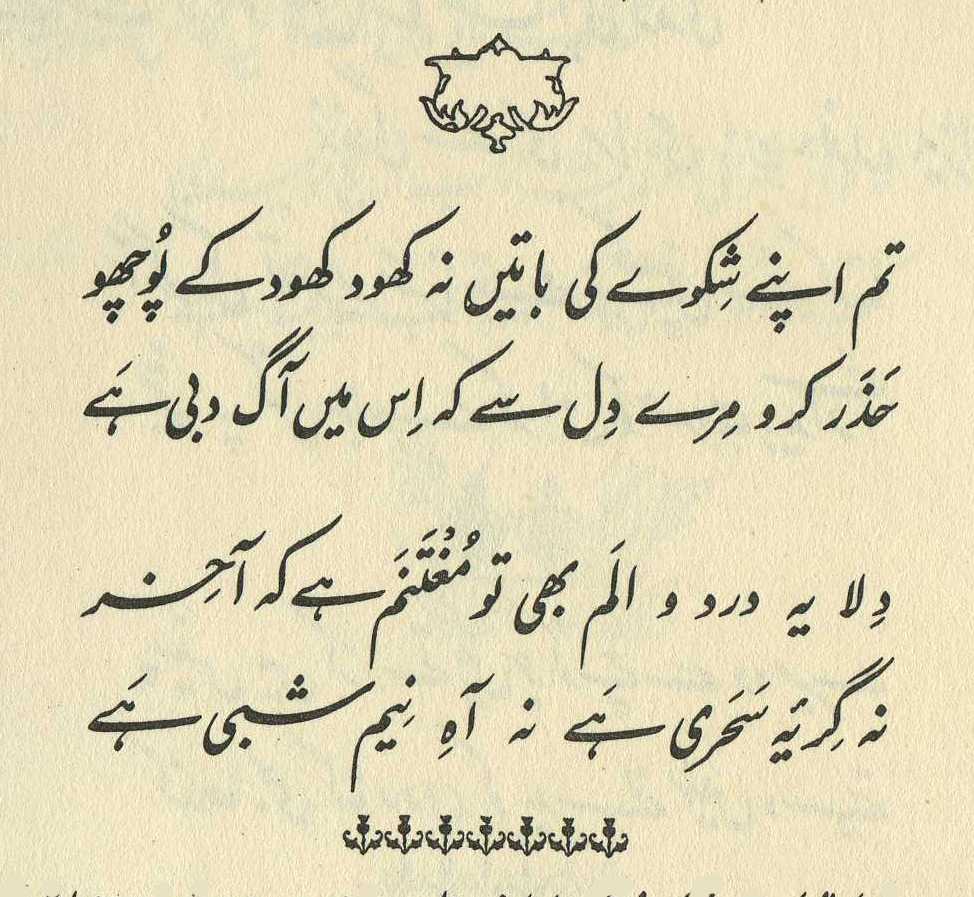 تم اپنے شِکوے کی باتیں نہ کھود کھود کے پُوچھو
حَذَر کرو مِرے دِل سے کہ اِس میں آگ دبی ہَے
دِلا یہ درد و الَم بھی تو مُغْتَنَم ہے کہ آخِر
نہ گِریۂ سَحَری ہَے نہ آہِ نِیم شبی ہَے